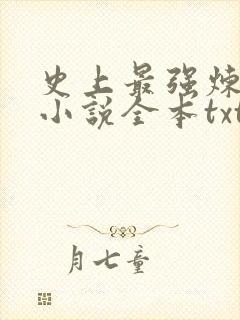 史上最强炼
小说全本txt
月七童